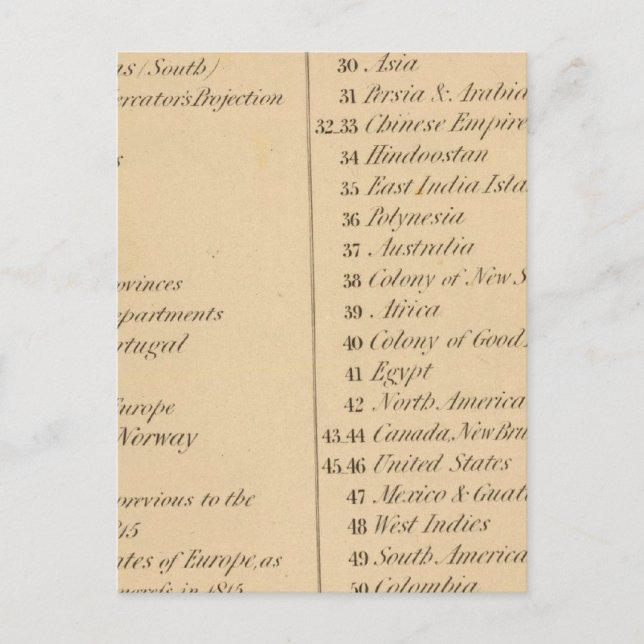 ns (South)
ercator's Projection
s
ovinces
epartments
rtugal
Europe
Norway
previous to the
1815
ates of Europe, as
ngrefs in 1815
30 Asia
31 Persia & Arabia
32_33 Chinese Empire
34 Hindoostan
35 East India Isla
36 Polynesia
37 Australia
38 Colony of New S
39 Africa
40 Colony of Good
41 Egypt
42 North America
43_44 Canada, New Bru
45_46 United States
47 Mexico & Guat
48 West Indies
49 South America
50 Colombia